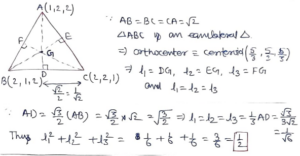 A(1,2,2)
F
E
G
B(2,1,2)
D
C(2,2,1)
√2/2 = 1/√2
∵ AB = BC = CA = √2
△ABC is an equilateral △
⇒ orthocenter = centroid (5/3, 5/3, 5/3)
⇒ l₁ = DG, l₂ = EG, l₃ = FG
and l₁ = l₂ = l₃
∵ AD = √3/2 (AB) = √3/2 × √2 = √3/√2 ⇒ l₁ = l₂ = l₃ = 1/3 AD = √3/3√2
= 1/√6
Thus l₁² + l₂² + l₃² = 1/6 + 1/6 + 1/6 = 3/6 = 1/2